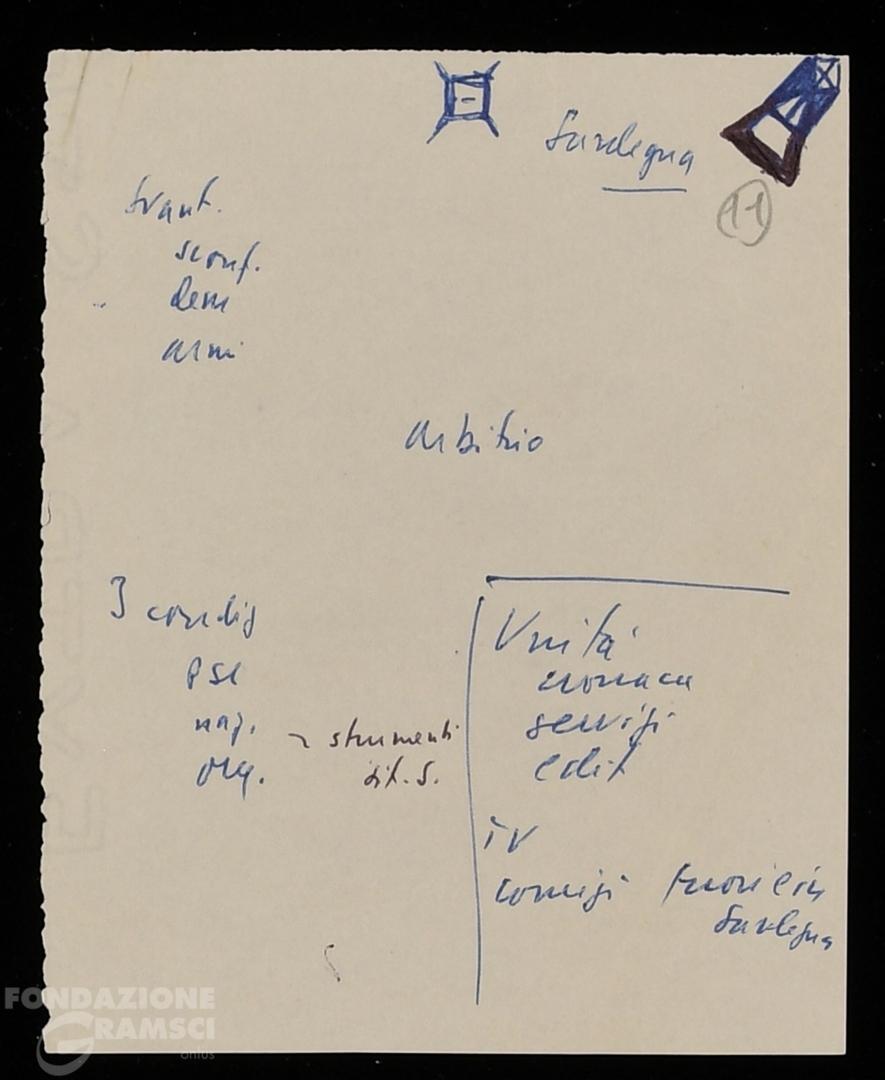 Sardegna
11
svant.
sconf.
dem
armi
Arbitrio
3 condiz
PSI
naz. ~ strumenti
org. sit. S.
Unità
cronaca
servizi
edit
TV
comizi fuori e in
Sardegna
FONDAZIONE
GRAMSCI
onlus